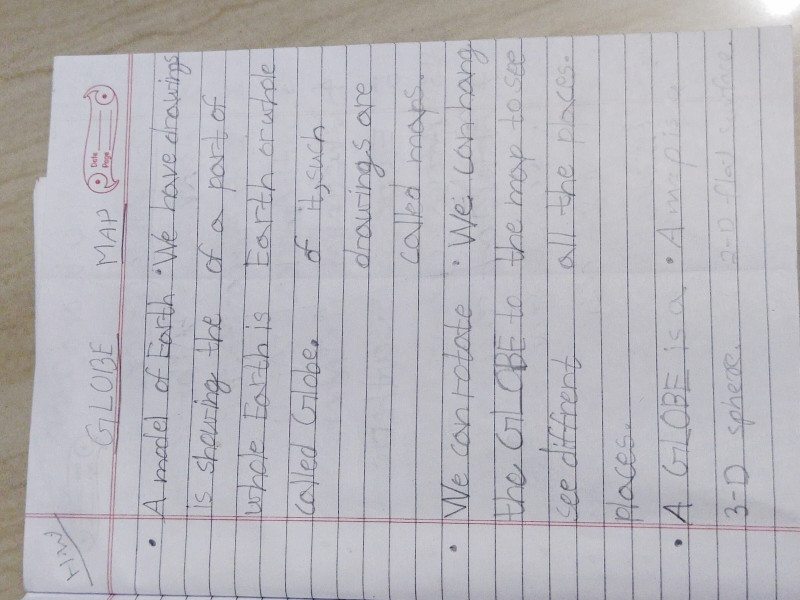 H/W
Date
Page
GLOBE MAP
• A model of Earth • We have drawings
is showing the of a part of
whole Earth is Earth or whole
called Globe. of it, such
drawings are
called maps.
• We can rotate • We can hang
the GLOBE to the map to see
see diffrent all the places.
places.
• A GLOBE is a • A map is a
3-D sphere. 2-D flat surface.